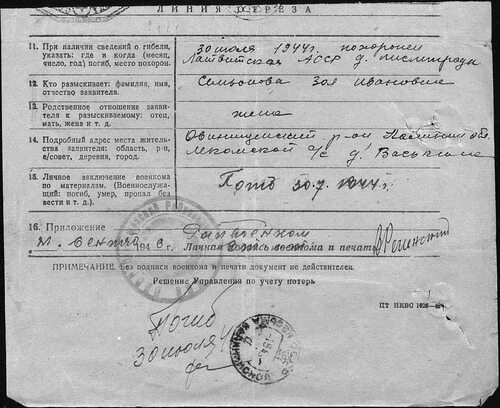 ЛИНИЯ ОТРЕЗА
11. При наличии сведений о гибели,
указать: где и когда (месяц,
число, год) погиб, место похорон.
30 июля 1944 г. похоронен
Латвийская ССР д.
12. Кто разыскивает: фамилия, имя,
отчество заявителя.
Семёнова Зоя Ивановне
13. Родственное отношение заяви-
теля к разыскиваемому: отец,
мать, жена и т. д.
жена
14. Подробный адрес места житель-
ства заявителя: область, р-н,
с/совет, деревня, город.
Овинищенский р-он Калинин обл
с/с д. Васькино
15. Личное заключение военкома
по материалам. (Военнослужа-
щий: погиб, умер, пропал без
вести и т. д.).
Погиб 30.7.1944 г.
16. Приложение
194 6 г.
Личная подпись военкома и печать
ПРИМЕЧАНИЕ: Без подписи военкома и печати документ не действителен.
Решение Управления по учету потерь
ЦТ НКВС
Погиб
30 июля